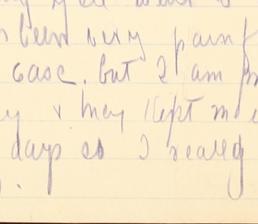 been very painf
case. but I am
y & they kept me
days so I really